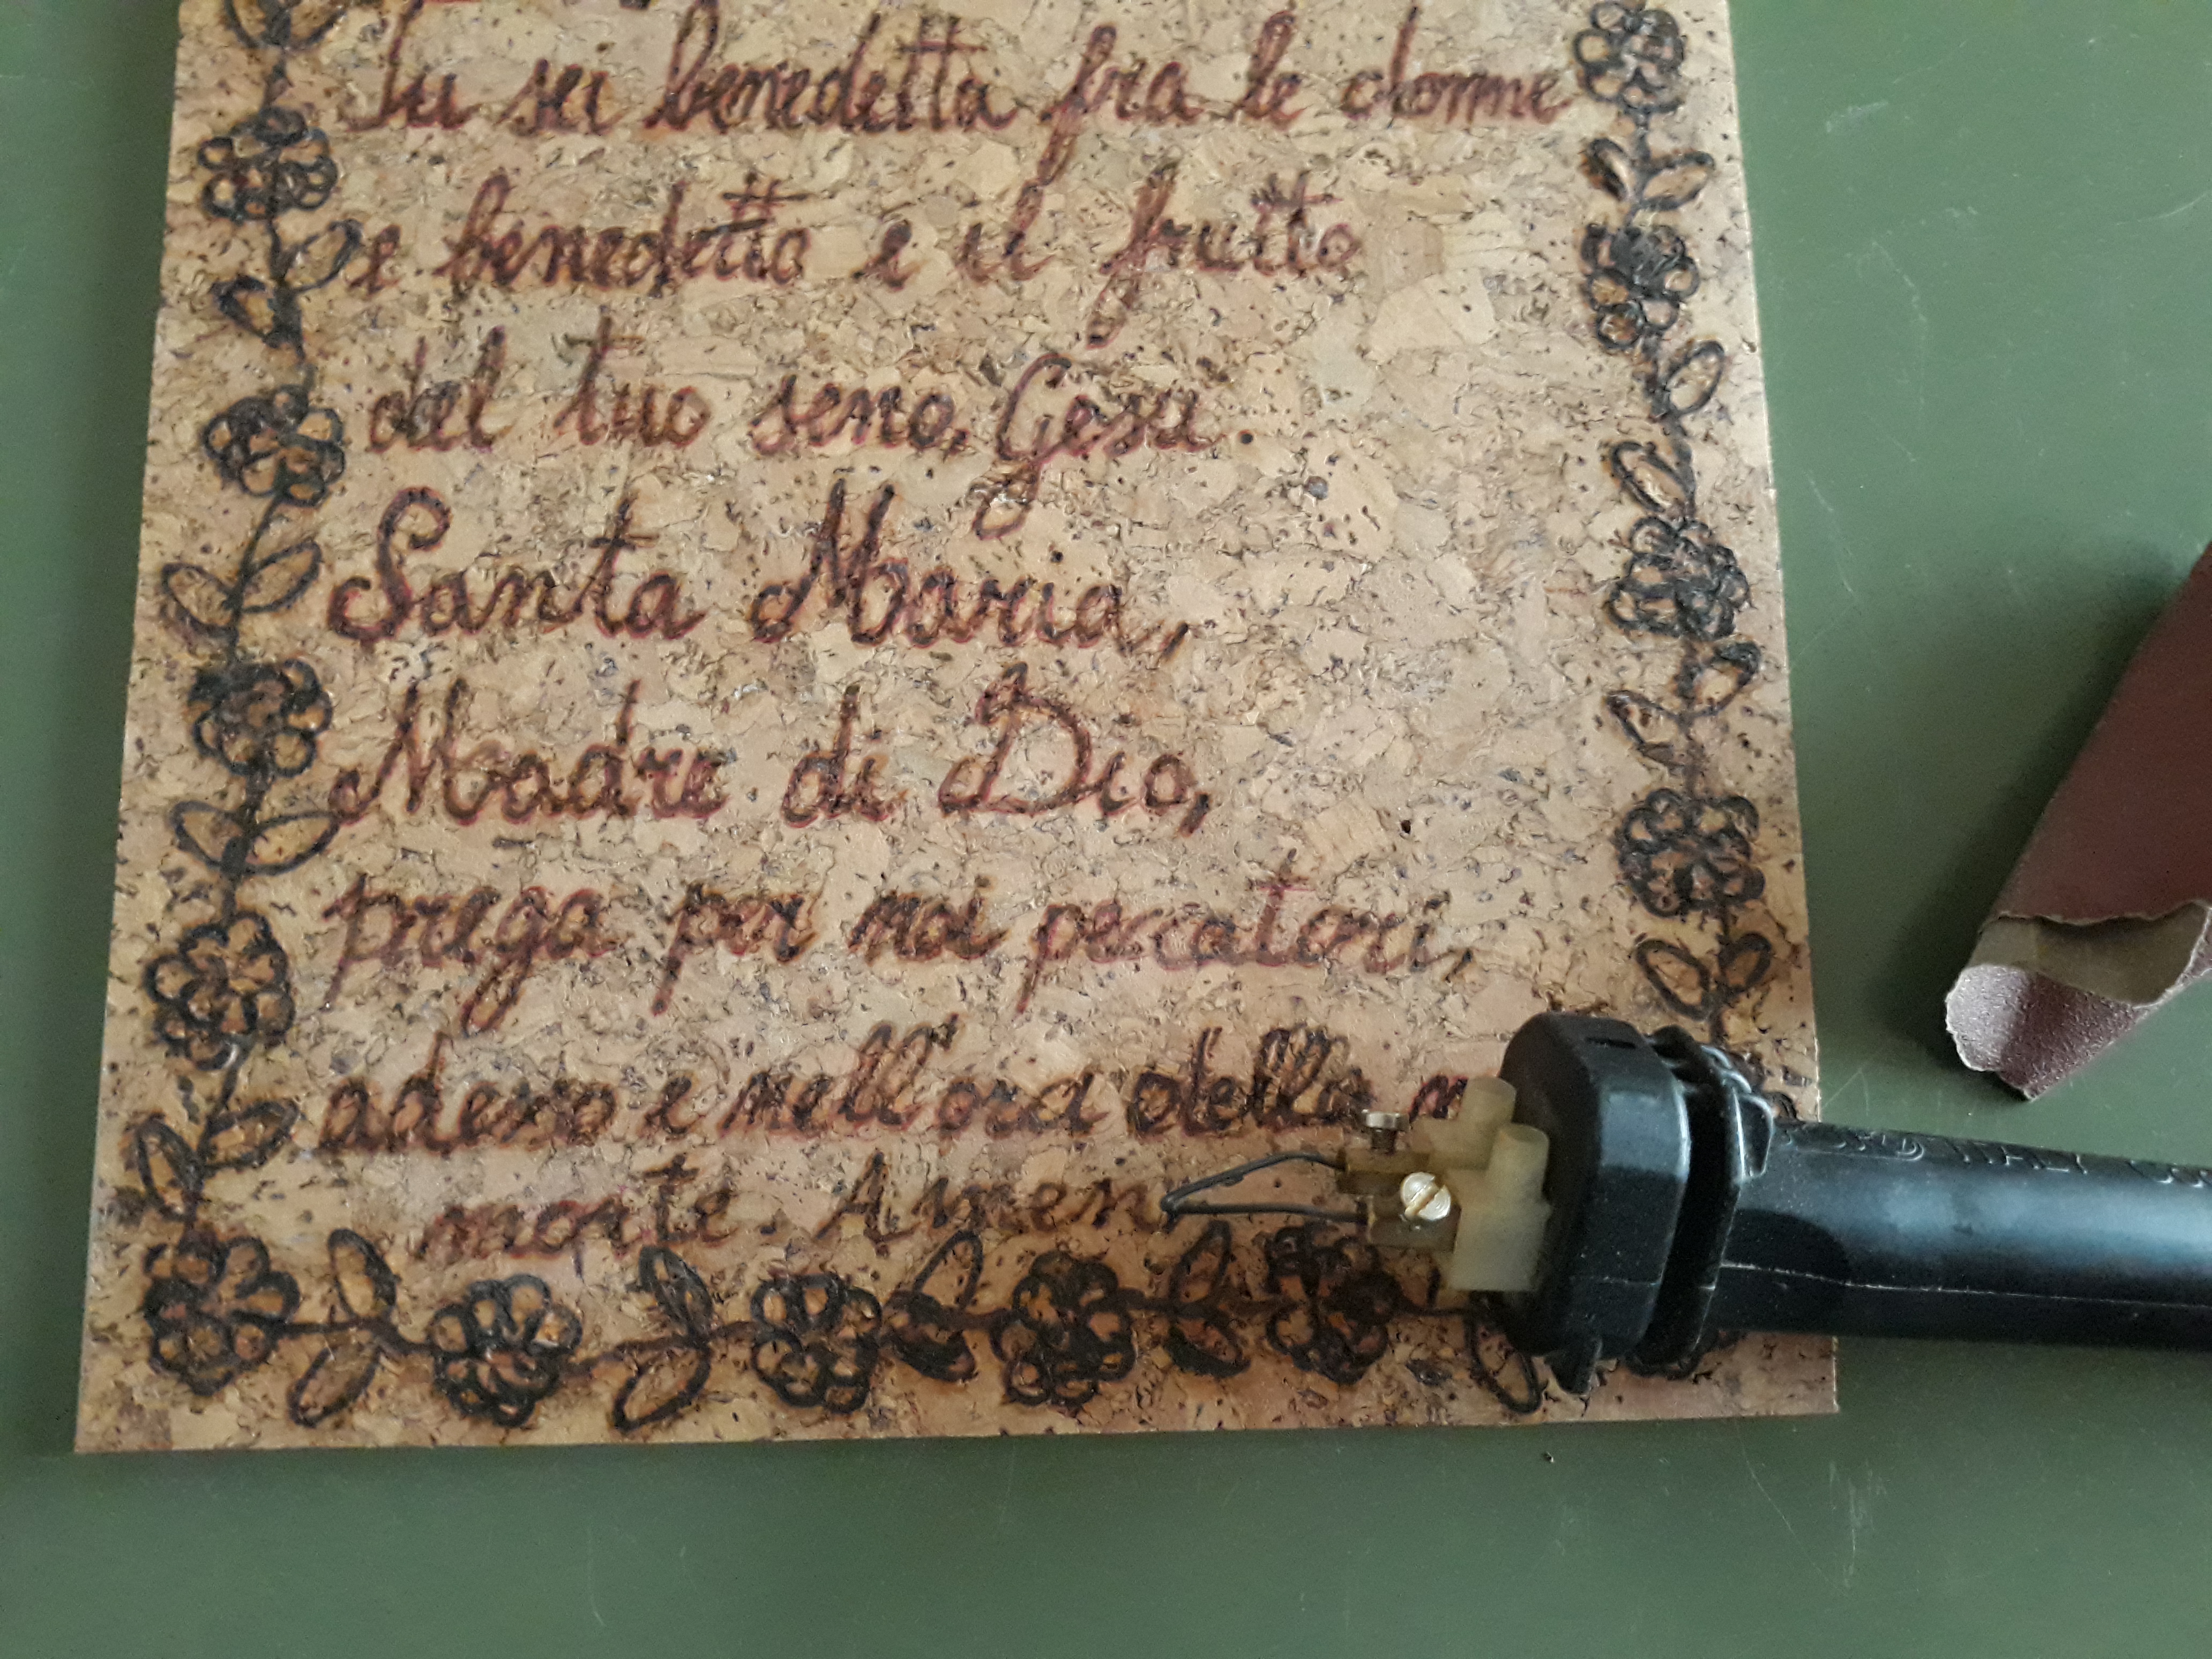 Tu sei benedetta fra le donne
e benedetto e il frutto
del tuo seno, Gesu.
Santa Maria,
Madre di Dio,
prega per noi peccatori,
adesso e nell'ora della m
morte. Amen
ITALY